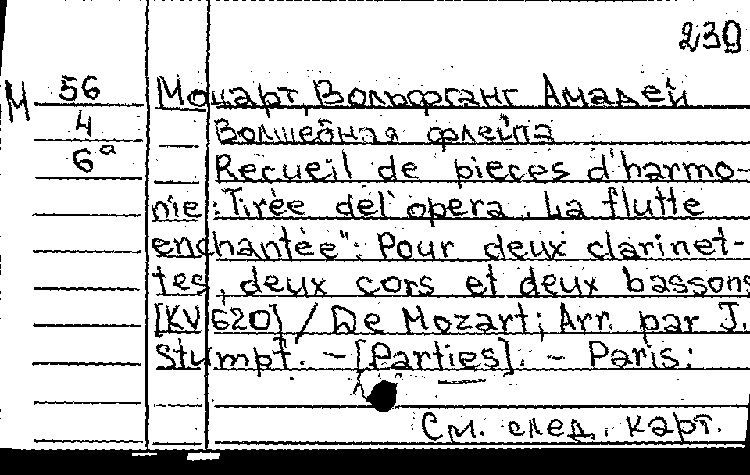 239
М 56 Моцарт, Вольфганг Амадей
4 Волшебная флейта
6а Recueil de pieces d'harmo-
nie: Tirée del'opera. La flutte
enchantée": Pour deux clarinet-
tes, deux cors et deux bassons
[KV 620] / De Mozart; Arr. par J.
Stumpf. – [Parties]. – Paris:
См. след. карт.